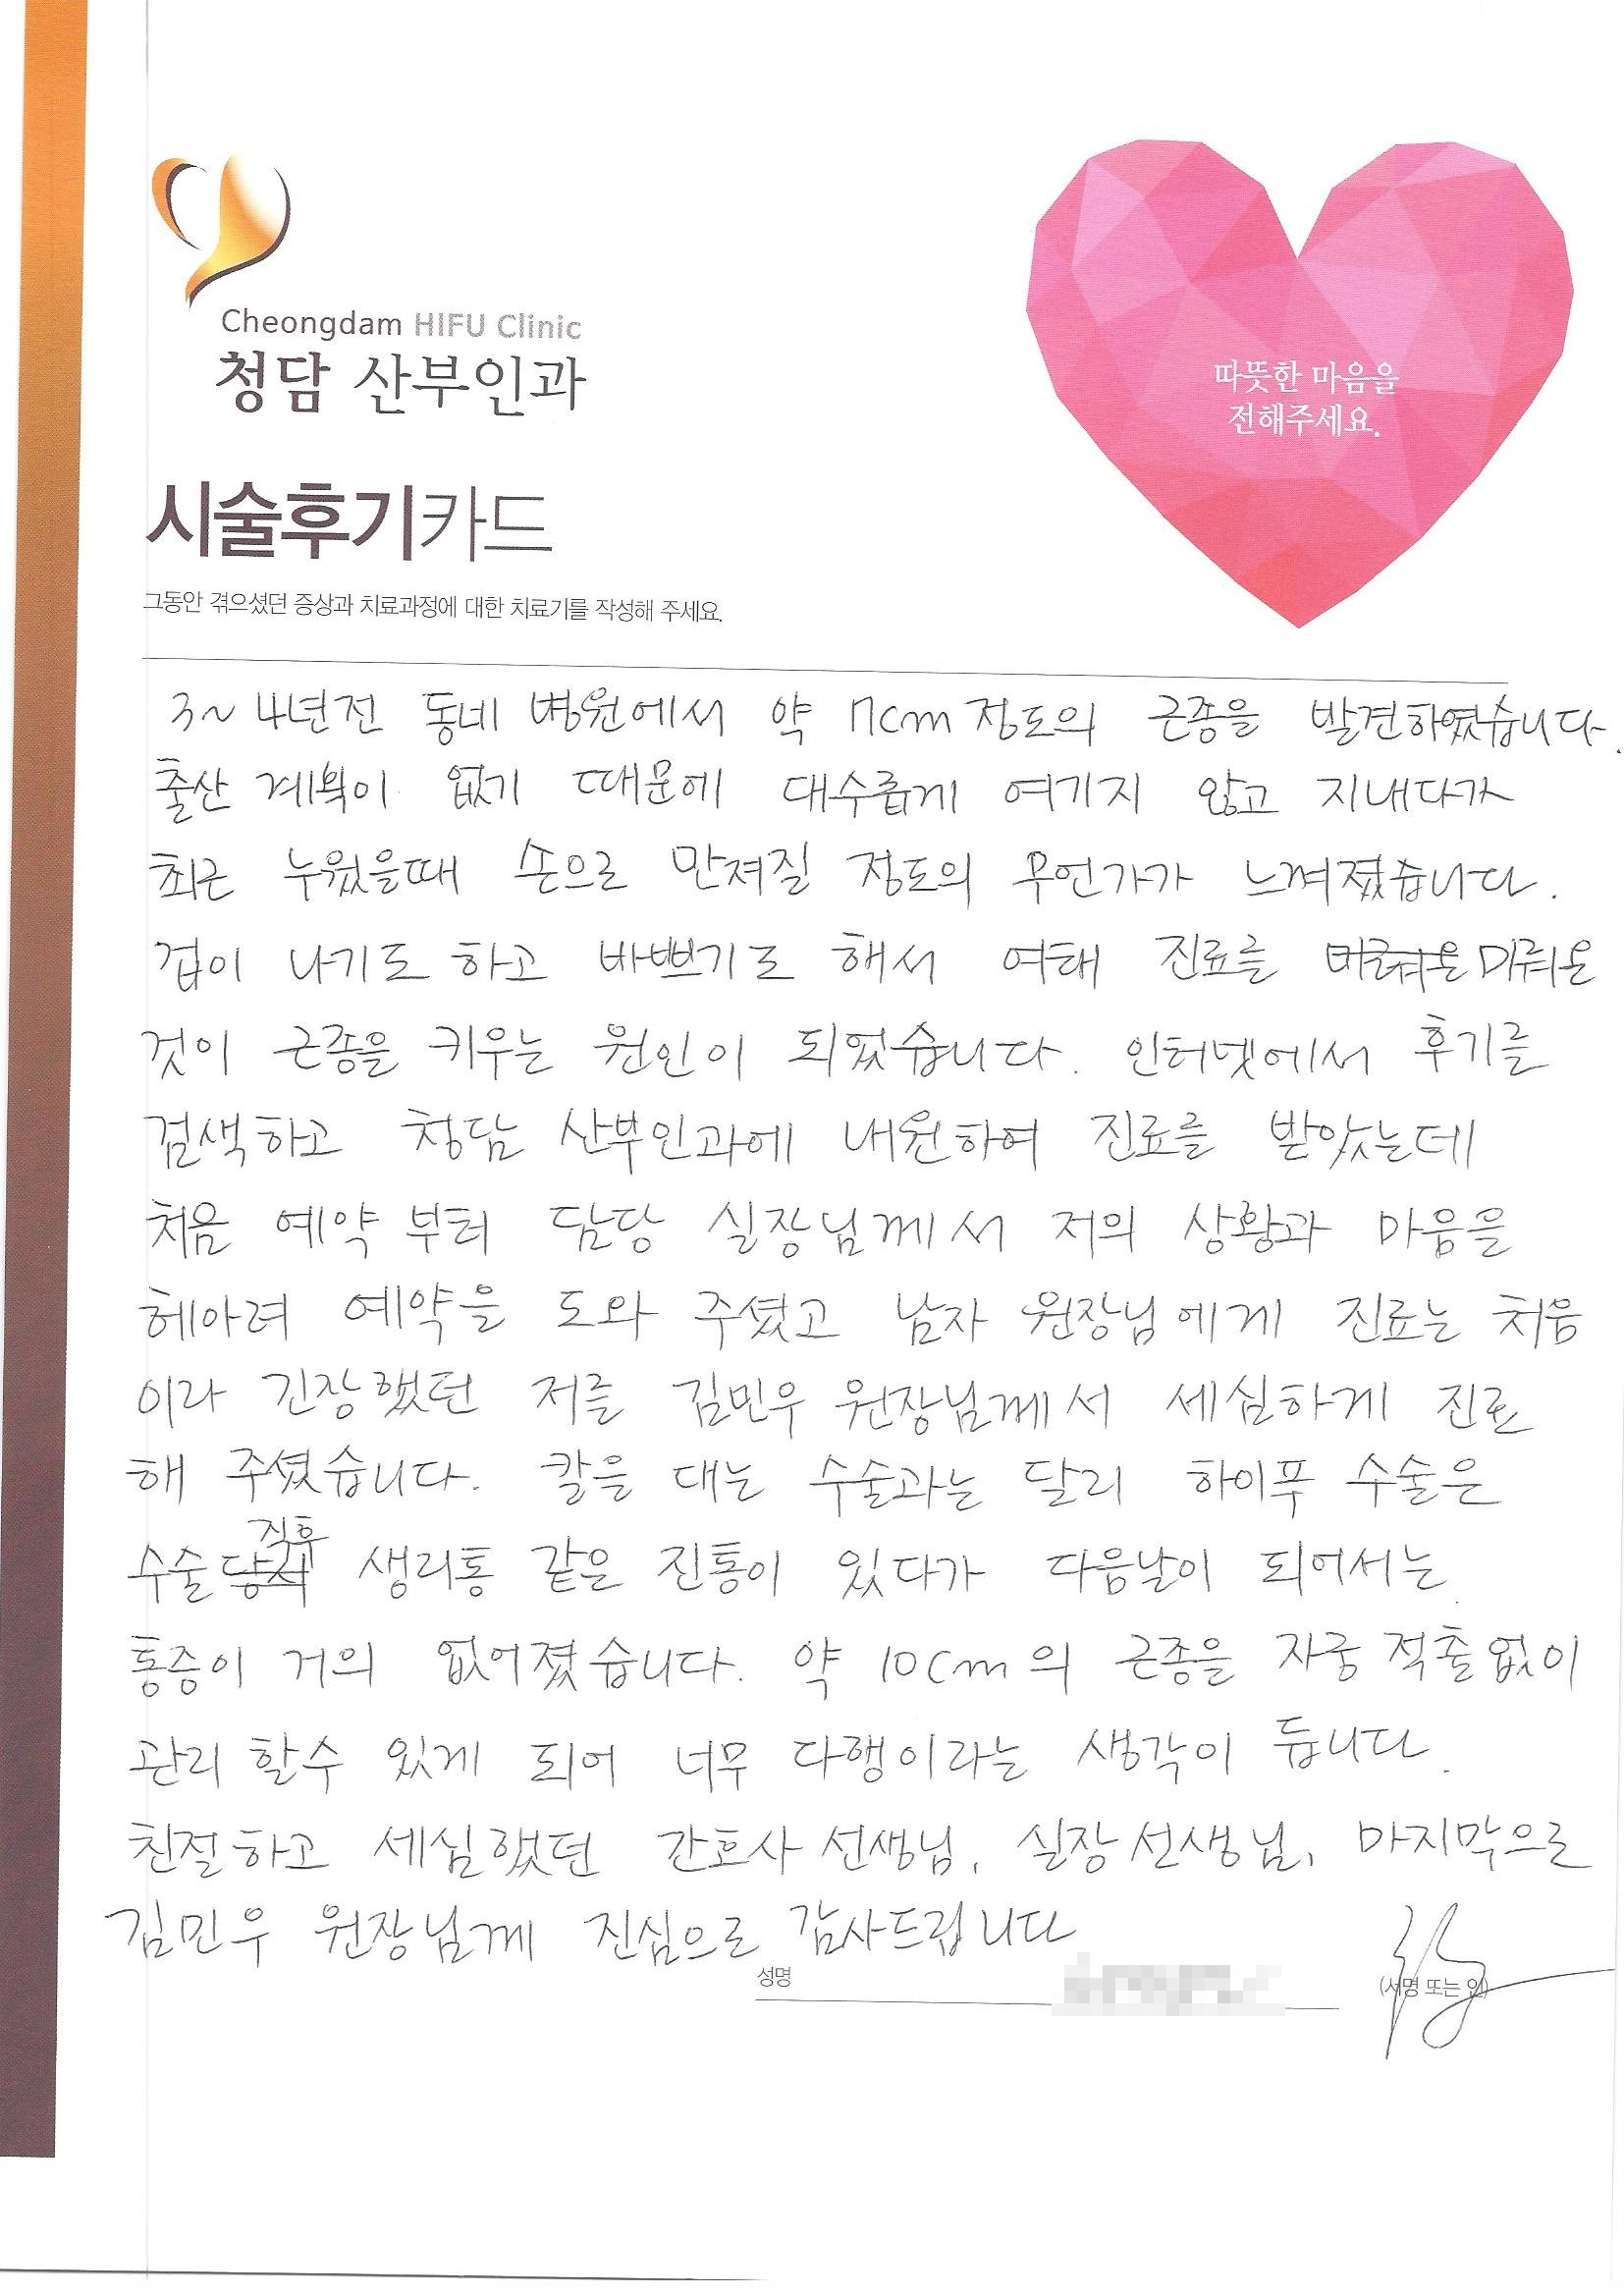 Cheongdam HIFU Clinic
청담 산부인과
따뜻한 마음을
전해주세요.
시술후기카드
그동안 겪으셨던 증상과 치료과정에 대한 치료기를 작성해 주세요.
3~4년전 동네 병원에서 약 7cm 정도의 근종을 발견하였습니다.
출산 계획이 없기 때문에 대수롭게 여기지 않고 지내다가
최근 누웠을때 손으로 만져질 정도의 무언가가 느껴졌습니다.
겁이 나기도 하고 바쁘기도 해서 여태 진료를 미뤄온
것이 근종을 키우는 원인이 되었습니다. 인터넷에서 후기를
검색하고 청담 산부인과에 내원하여 진료를 받았는데
처음 예약 부터 담당 실장님께서 저의 상황과 마음을
헤아려 예약을 도와 주셨고 남자 원장님에게 진료는 처음
이라 긴장했던 저를 김민우 원장님께서 세심하게 진료
해 주셨습니다. 칼을 대는 수술과는 달리 하이푸 수술은
수술 직후 생리통 같은 진통이 있다가 다음날이 되어서는
통증이 거의 없어졌습니다. 약 10cm의 근종을 자궁 적출없이
관리 할수 있게 되어 너무 다행이라는 생각이 듭니다.
친절하고 세심했던 간호사 선생님, 실장 선생님, 마지막으로
김민우 원장님께 진심으로 감사드립니다
성명
(서명 또는 인)